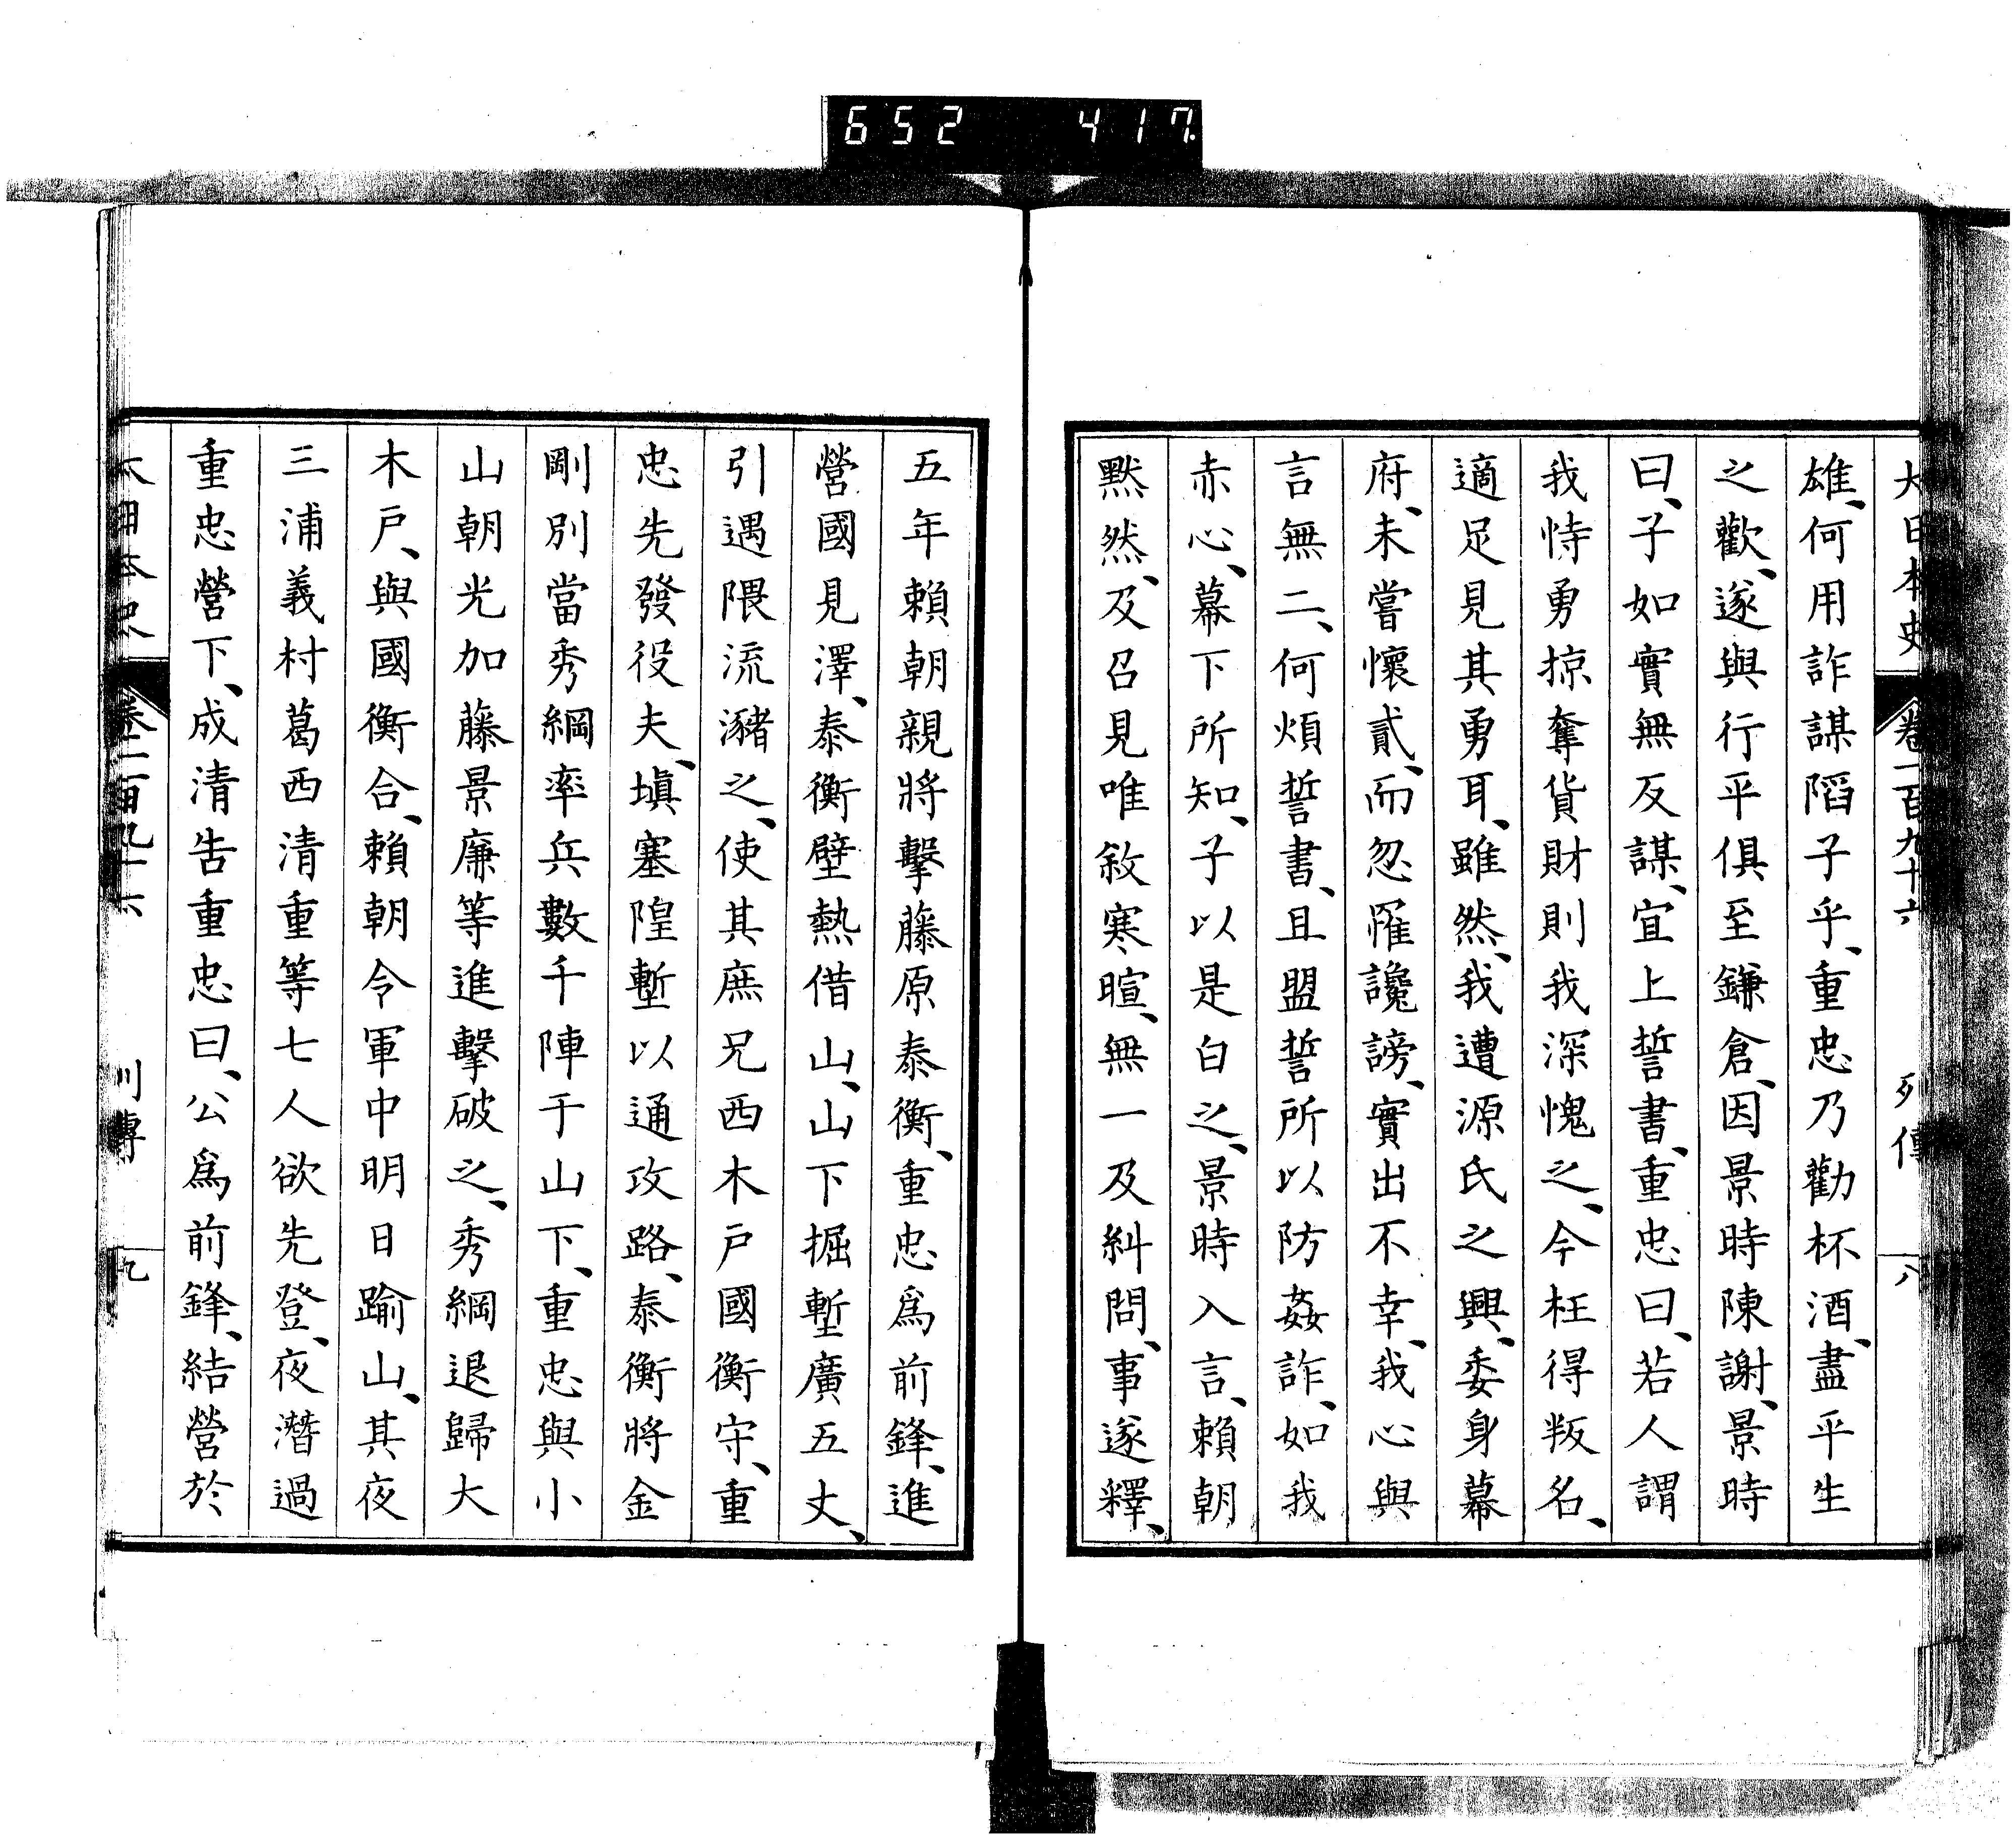 652 417
大日本史 卷一百九十六 列傳 八
雄、何用詐謀陷子乎、重忠乃勸杯酒、盡平生
之歡、遂與行平俱至鎌倉、因景時陳謝、景時
曰、子如實無反謀、宜上誓書、重忠曰、若人謂
我恃勇掠奪貨財則我深愧之、今枉得叛名、
適足見其勇耳、雖然、我遭源氏之興、委身幕
府、未嘗懷貳、而忽罹讒謗、實出不幸、我心與
言無二、何煩誓書、且盟誓所以防姦詐、如我
赤心、幕下所知、子以是白之、景時入言、賴朝
默然、及召見唯敘寒暄、無一及糾問、事遂釋、
五年賴朝親將擊藤原泰衡、重忠爲前鋒、進
營國見澤、泰衡壁熱借山、山下掘塹廣五丈、
引遇隈流瀦之、使其庶兄西木戶國衡守、重
忠先發役夫、塡塞隍塹以通攻路、泰衡將金
剛別當秀綱率兵數千陣于山下、重忠與小
山朝光加藤景廉等進擊破之、秀綱退歸大
木戶、與國衡合、賴朝令軍中明日踰山、其夜
三浦義村葛西清重等七人欲先登、夜潛過
重忠營下、成清告重忠曰、公爲前鋒、結營於
大日本史 卷一百九十六 列傳 九